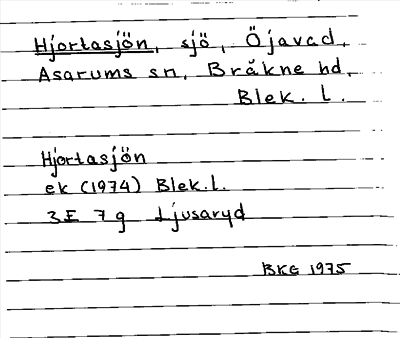 Hjortasjön, sjö, Öjavad,
Asarums sn, Bräkne hd,
Blek. l.
Hjortasjön
ek (1974) Blek. l.
3E 7g Ljusaryd
BKG 1975